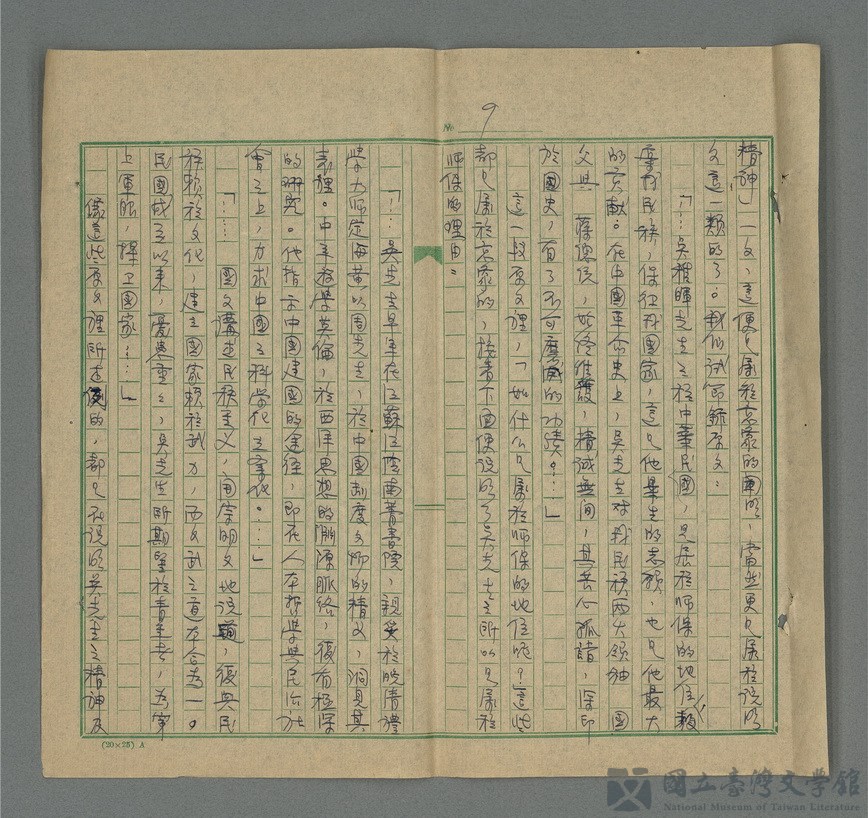 № 9
精神」一文，這便是屬於示蒙的團體，當然更是屬於說明
文這一類的了。我們試節錄原文：
「…吳稚暉先生之於中華民國，是居於師保的地位，輔
我民族，保衛我國家，這是他畢生的志願，也是他最大
的貢獻。在中國革命史上，吳先生對我民族兩大領袖 國
父與 蔣總統，始終維護，精誠無間，其苦心孤詣，深印
於國史，有了不可磨滅的功績。…」
這一段原文裡，「如什么是屬於師保的地位呢？這些
都是屬於示蒙的，接着下面便說明了吳先生之所以是屬於
師保的理由：
「…吳先生早年在江蘇江陰南菁書院，親炙於晚清禮
學大師定海黄以周先生，於中國制度文物的精义，洞見其
表裡。中年遊學英倫，於西洋思想的淵源脈絡，復有極深
的研究。他指示中國建國的途徑，即在人本哲學與民治社
會之上，力求中國之科學化工業化。…」
「…… 國父講述民族主义，
族賴於文化，建立國家賴於武力，而文武之道在合為一。
民國成立以來，憂患重々，吳先生所期望於青年者，為穿
上軍服，捍卫國家。…」
像這些原文裡所述
的，都是在說明吳先生之精神及
(20×25) A
國立臺灣文學館
National Museum of Taiwan Literature